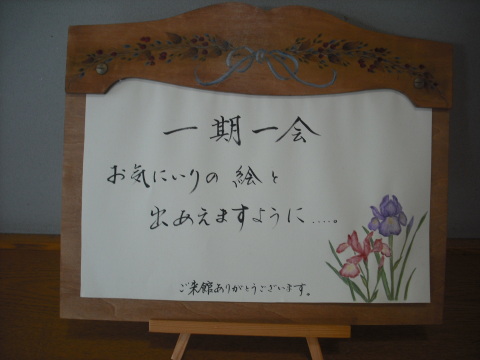 一期一会
お気にいりの絵と
出あえますように……。
ご来館ありがとうございます。